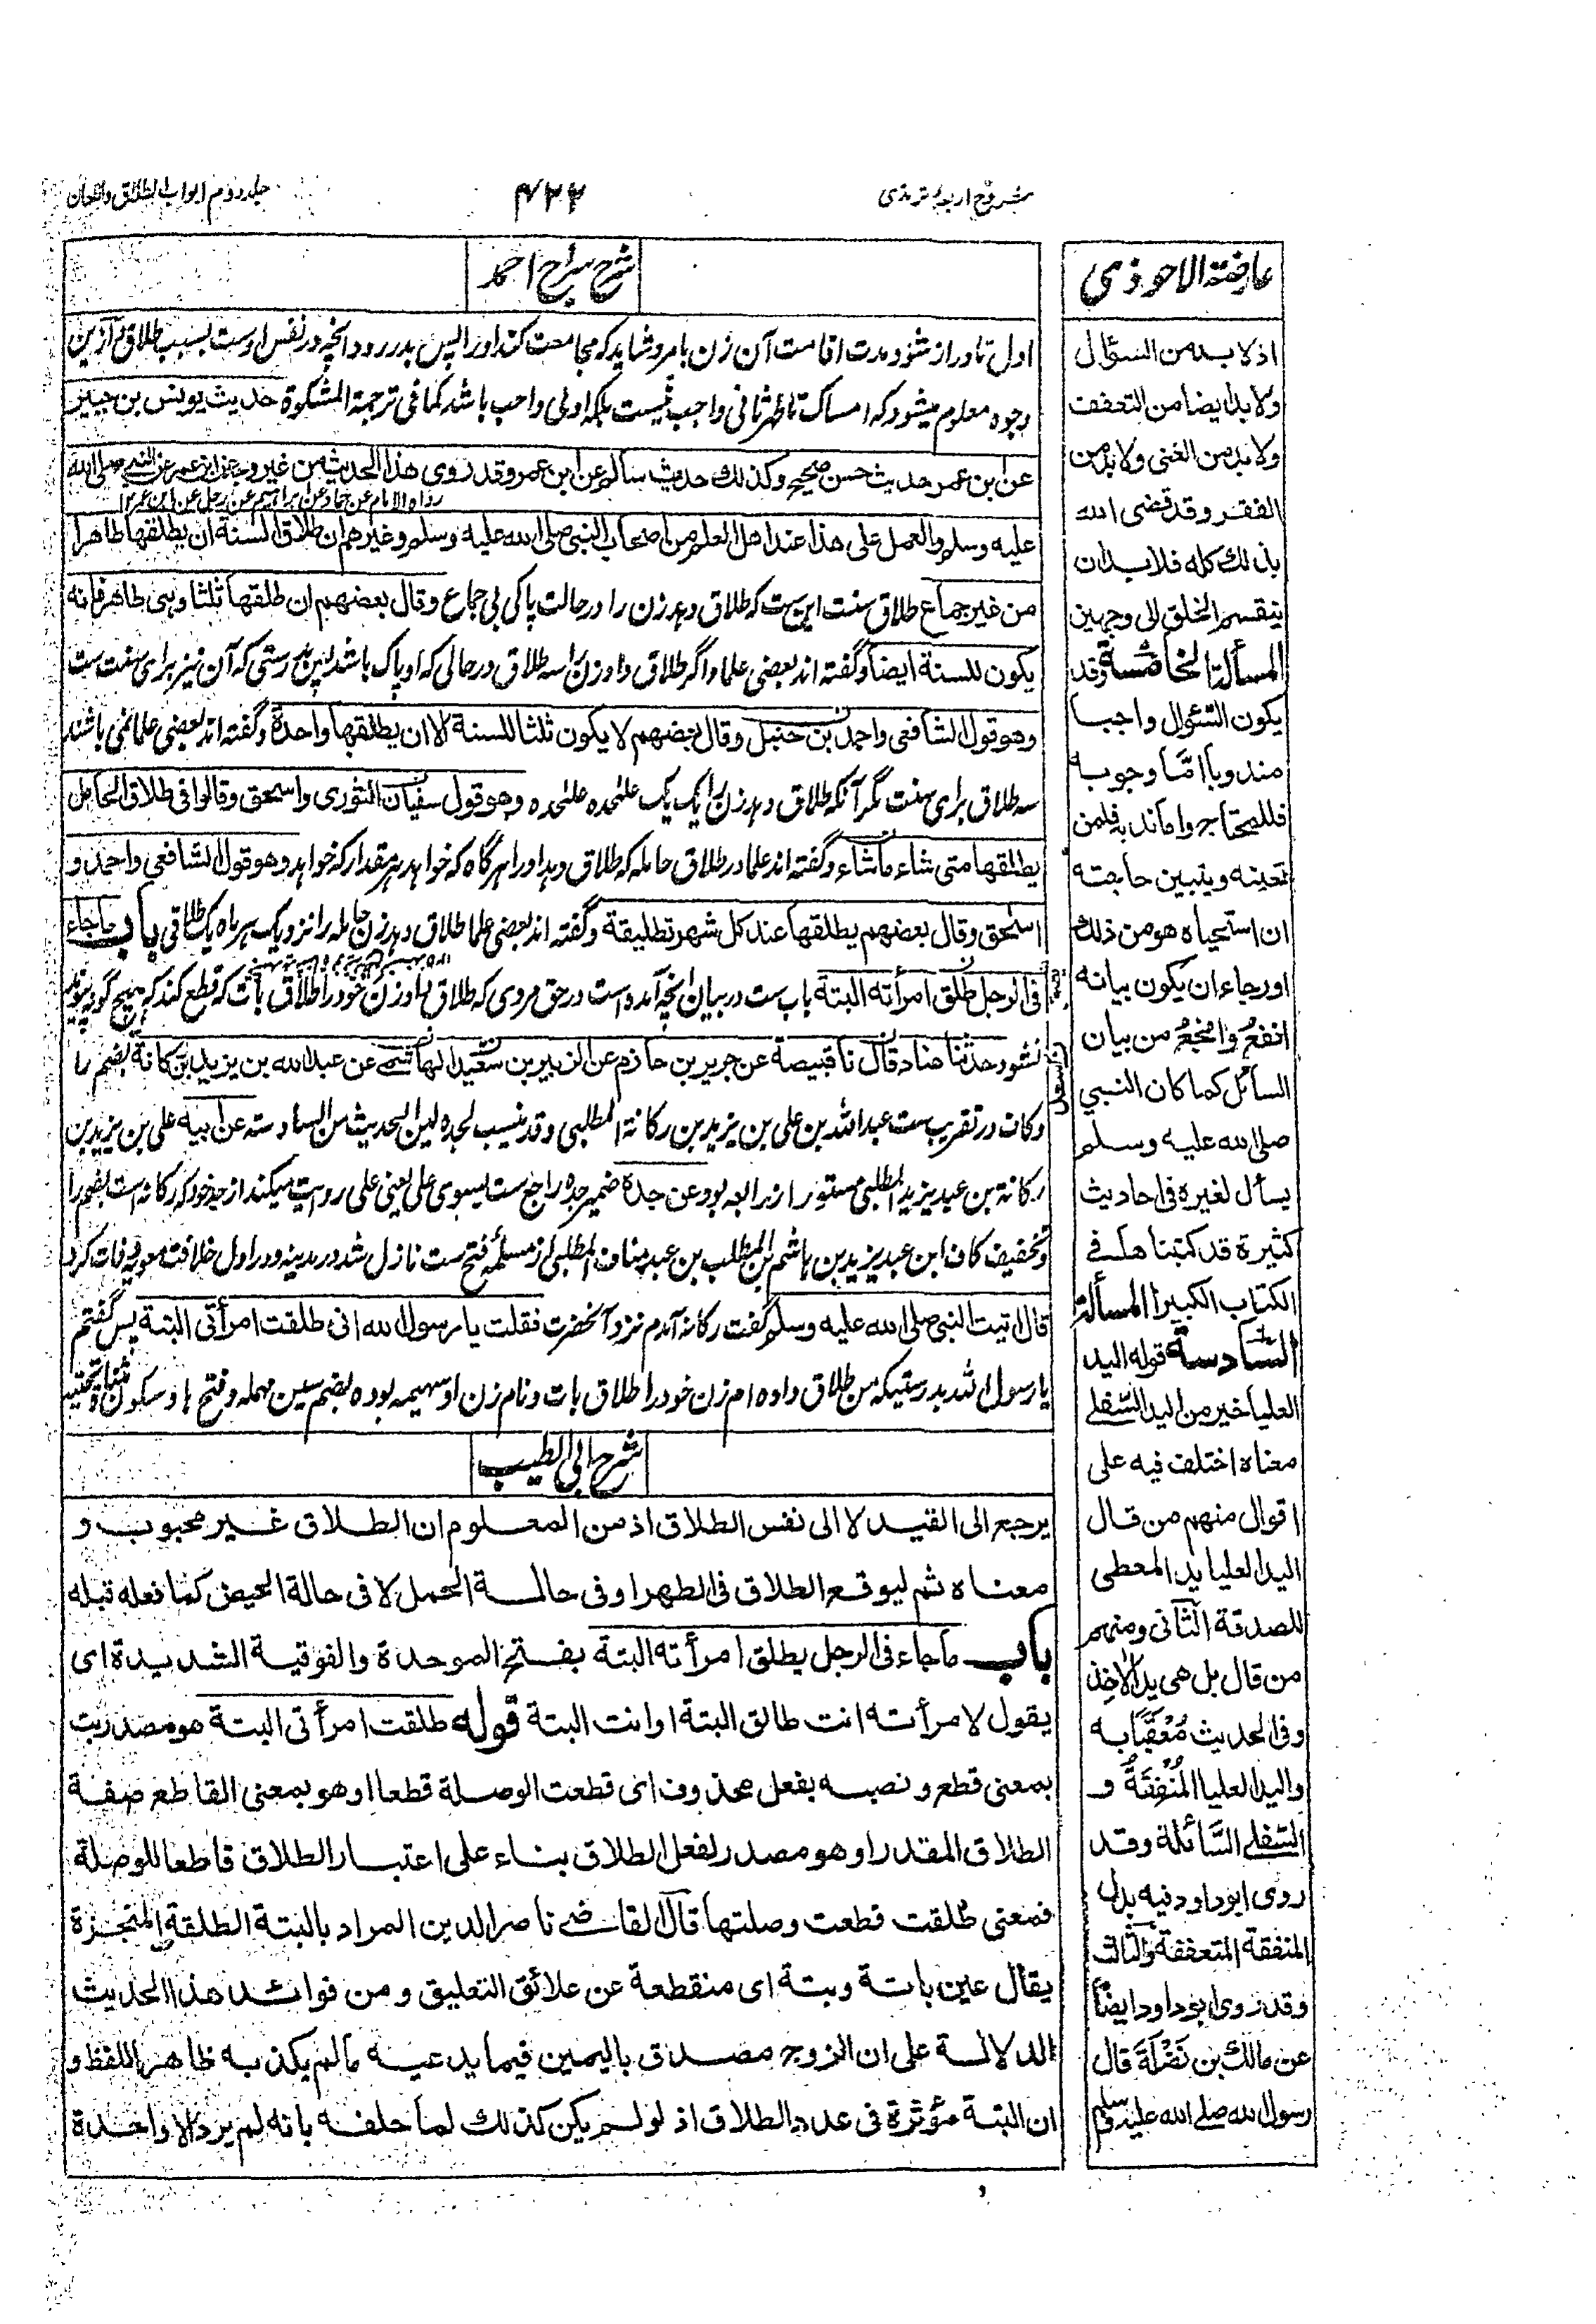 شروح اربعۂ ترمذی
۴۲۲
جلد دوم ابواب الطلاق واللعان
عارضة الاحوذی
اذ لا بد من السؤال
ولا بد ایضا من التعفف
ولا بد من الغنی ولا بد من
الفقر وقد قضی الله
بذلك کله فلا بد ان
ینقسم الخلق الی وجهین
المسألة الخامسة وقد
یکون السؤال واجبا
مندوبا اما وجوبه
فللمحتاج واما ندبه فلمن
تعینه ویتبین حاجته
ان استحیاه هو من ذلك
او رجاء ان یکون بیانه
انفع وانجع من بیان
السائل کما کان النبی
صلی الله علیه وسلم
یسأل لغیره فی احادیث
کثیرة قد کتبناها فی
الکتاب الکبیر المسألة
السادسة قوله الید
العلیا خیر من الید السفلے
معناه اختلف فیه علی
اقوال منهم من قال
الید العلیا ید المعطی
للصدقة الثانی ومنهم
من قال بل هی ید الآخذ
وفی الحدیث مُعَقَّبًا به
والید العلیا المُنْفِقَةُ و
السفلے السَّائلة وقد
روی ابو داود فیه بدل
المنفقة المتعففة والثالث
وقد روی ابو داود ایضاً
عن مالك بن نَضْلَةَ قال
رسول الله صلے الله علیه وسلم
شرح سراج احمد
اول تا دراز شود مدت اقامت آن زن با مرد شاید که مجامعت کند او را پس بدر رود انچه در نفس اوست بسبب طلاق از این
وجوه معلوم میشود که امساک تا طهر ثانی واجب نیست بلکه اولی واحب باشد کما فی ترجمة المشکوة حدیث یونس بن جبیر
عن ابن عمر حدیث حسن صحیح وکذلك حدیث سالم عن ابن عمر وقد روی هذا الحدیث من غیر وجه عن ابن عمر عن النبی صلی الله
رواه الامام عن حماد عن ابراهیم عن رجل عن ابن عمر ۱۲
علیه وسلم والعمل علی هذا عند اهل العلم من اصحاب النبی صلی الله علیه وسلم وغیرهم ان طلاق السنة ان یطلقها طاهرا
من غیر جماع طلاق سنت این ست که طلاق دهد زن را در حالت پاکی بی جماع وقال بعضهم ان طلقها ثلثا وهی طاهر فانه
یکون للسنة ایضا وگفته اند بعضی علما و اگر طلاق داد زن را سه طلاق در حالی که او پاک باشد پس بدرستی که آن نیز برای سنت ست
وهو قول الشافعی واحمد بن حنبل وقال بعضهم لا یکون ثلثا للسنة الا ان یطلقها واحدة وگفته اند بعضی علما نمی باشند
سه طلاق برای سنت مگر آنکه طلاق دهد زن را یک یک علٰحده علٰحده وهو قول سفیان الثوری واسحق وقالوا فی طلاق الحامل
یطلقها متی شاء ما شاء وگفته اند علما در طلاق حامله که طلاق دهد او را هر گاه که خواهد هر مقدار که خواهد وهو قول الشافعی واحمد و
اسحق وقال بعضهم یطلقها عند کل شهر تطلیقة وگفته اند بعضی علما طلاق دهد زن حامله را نزدیک هر ماه یک طلاقی باب ما جاء
فی الرجل طلق امرأته البتة باب ست در بیان انچه آمده است در حق مردی که طلاق داد زن خود را طلاق بات که قطع کند که هیچ گونه پیوند
نشود حدثنا هناد قال نا قبیصة عن جریر بن حازم عن الزبیر بن سعید الهاشمی عن عبدالله بن یزید بن رکانة بضم را
وکاف در تقریب ست عبدالله بن علی بن یزید بن رکانة المطلبی وقد ینسب لجده لین الحدیث من السادسة عن ابیه علی بن یزید بن
رکانة بن عبد یزید المطلبی مستور از رابعه بود عن جده ضمیر جده راجع ست بسوی علی یعنی علی روایت میکند از جد خود که رکانه است بضم را
وتخفیف کاف ابن عبد یزید بن هاشم بن المطلب بن عبد مناف المطلبی از مسلمهٔ فتح ست نازل شد در مدینه و در اول خلافت معویه وفات کرد
قال اتیت النبی صلی الله علیه وسلم گفت رکانه آمدم نزد آنحضرت فقلت یا رسول الله انی طلقت امرأتی البتة پس گفتم
یا رسول الله بدرستیکه من طلاق داده ام زن خود را طلاق بات و نام زن او سهیمه بوده بضم سین مهمله وفتح ها وسکون مثناة تحتیه
شرح ابی الطیب
یرجع الی القید لا الی نفس الطلاق اذ من المعلوم ان الطلاق غیر محبوب و
معناه ثم لیوقع الطلاق فی الطهر او فی حالة الحمل لا فی حالة الحیض کما فعله قبله
باب ما جاء فی الرجل یطلق امرأته البتة بفتح الموحدة والفوقیة الشدیدة ای
یقول لامرأته انت طالق البتة او انت البتة قوله طلقت امرأتی البتة هو مصدر بت
بمعنی قطع ونصبه بفعل محذوف ای قطعت الوصلة قطعا او هو بمعنی القاطع صفة
الطلاق المقدر او هو مصدر لفعل الطلاق بناء علی اعتبار الطلاق قاطعا للوصلة
فمعنی طلقت قطعت وصلتها قال القاضے ناصر الدین المراد بالبتة الطلقة المنجزة
یقال عین باتة وبتة ای منقطعة عن علائق التعلیق ومن فوائد هذا الحدیث
الدلالة علی ان الزوج مصدق بالیمین فیما یدعیه ما لم یکذبه ظاهر اللفظ و
ان البتة مؤثرة فی عدد الطلاق اذ لو لم یکن کذلك لما حلفه بانه لم یرد الا واحدة